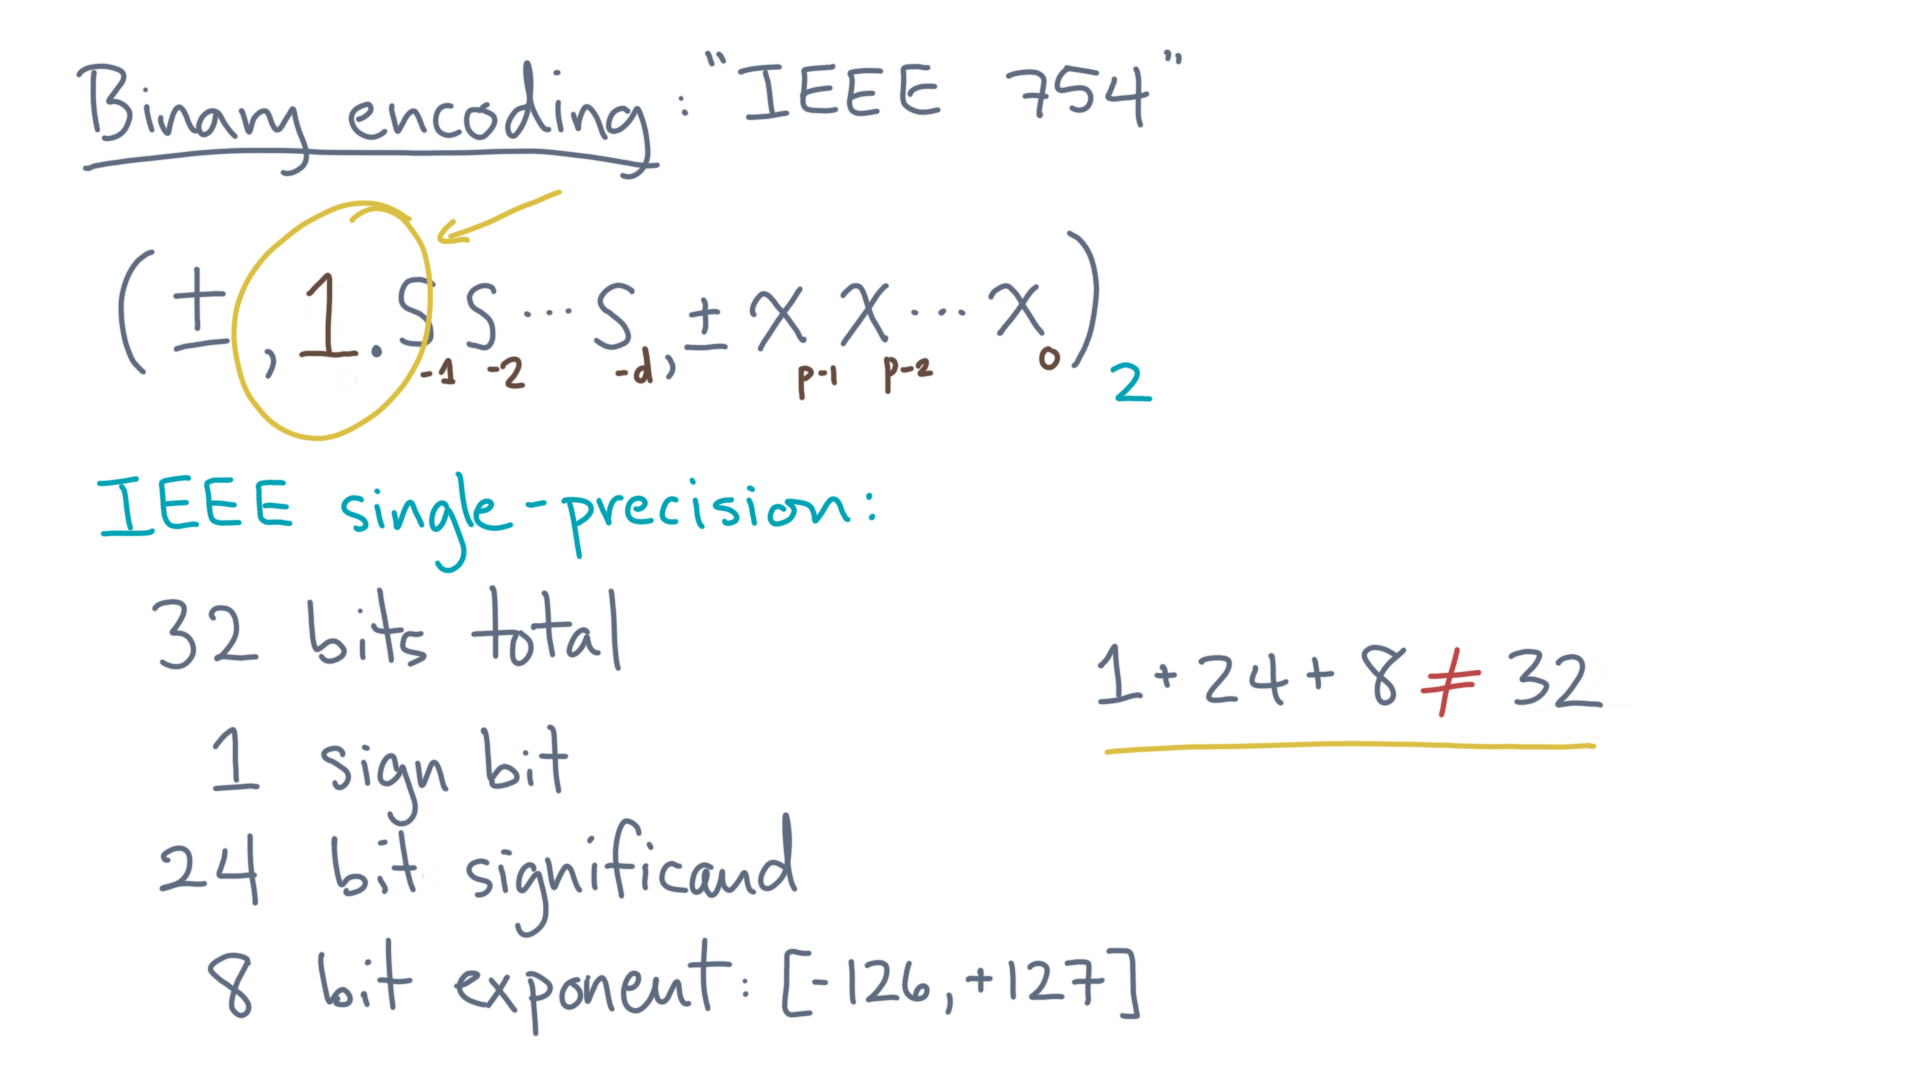 Binary encoding: "IEEE 754"
(±, 1.S₋₁S₋₂···S₋d, ±xₚ₋₁xₚ₋₂···x₀)₂
IEEE single-precision:
32 bits total
1 + 24 + 8 ≠ 32
1 sign bit
24 bit significand
8 bit exponent: [-126, +127]